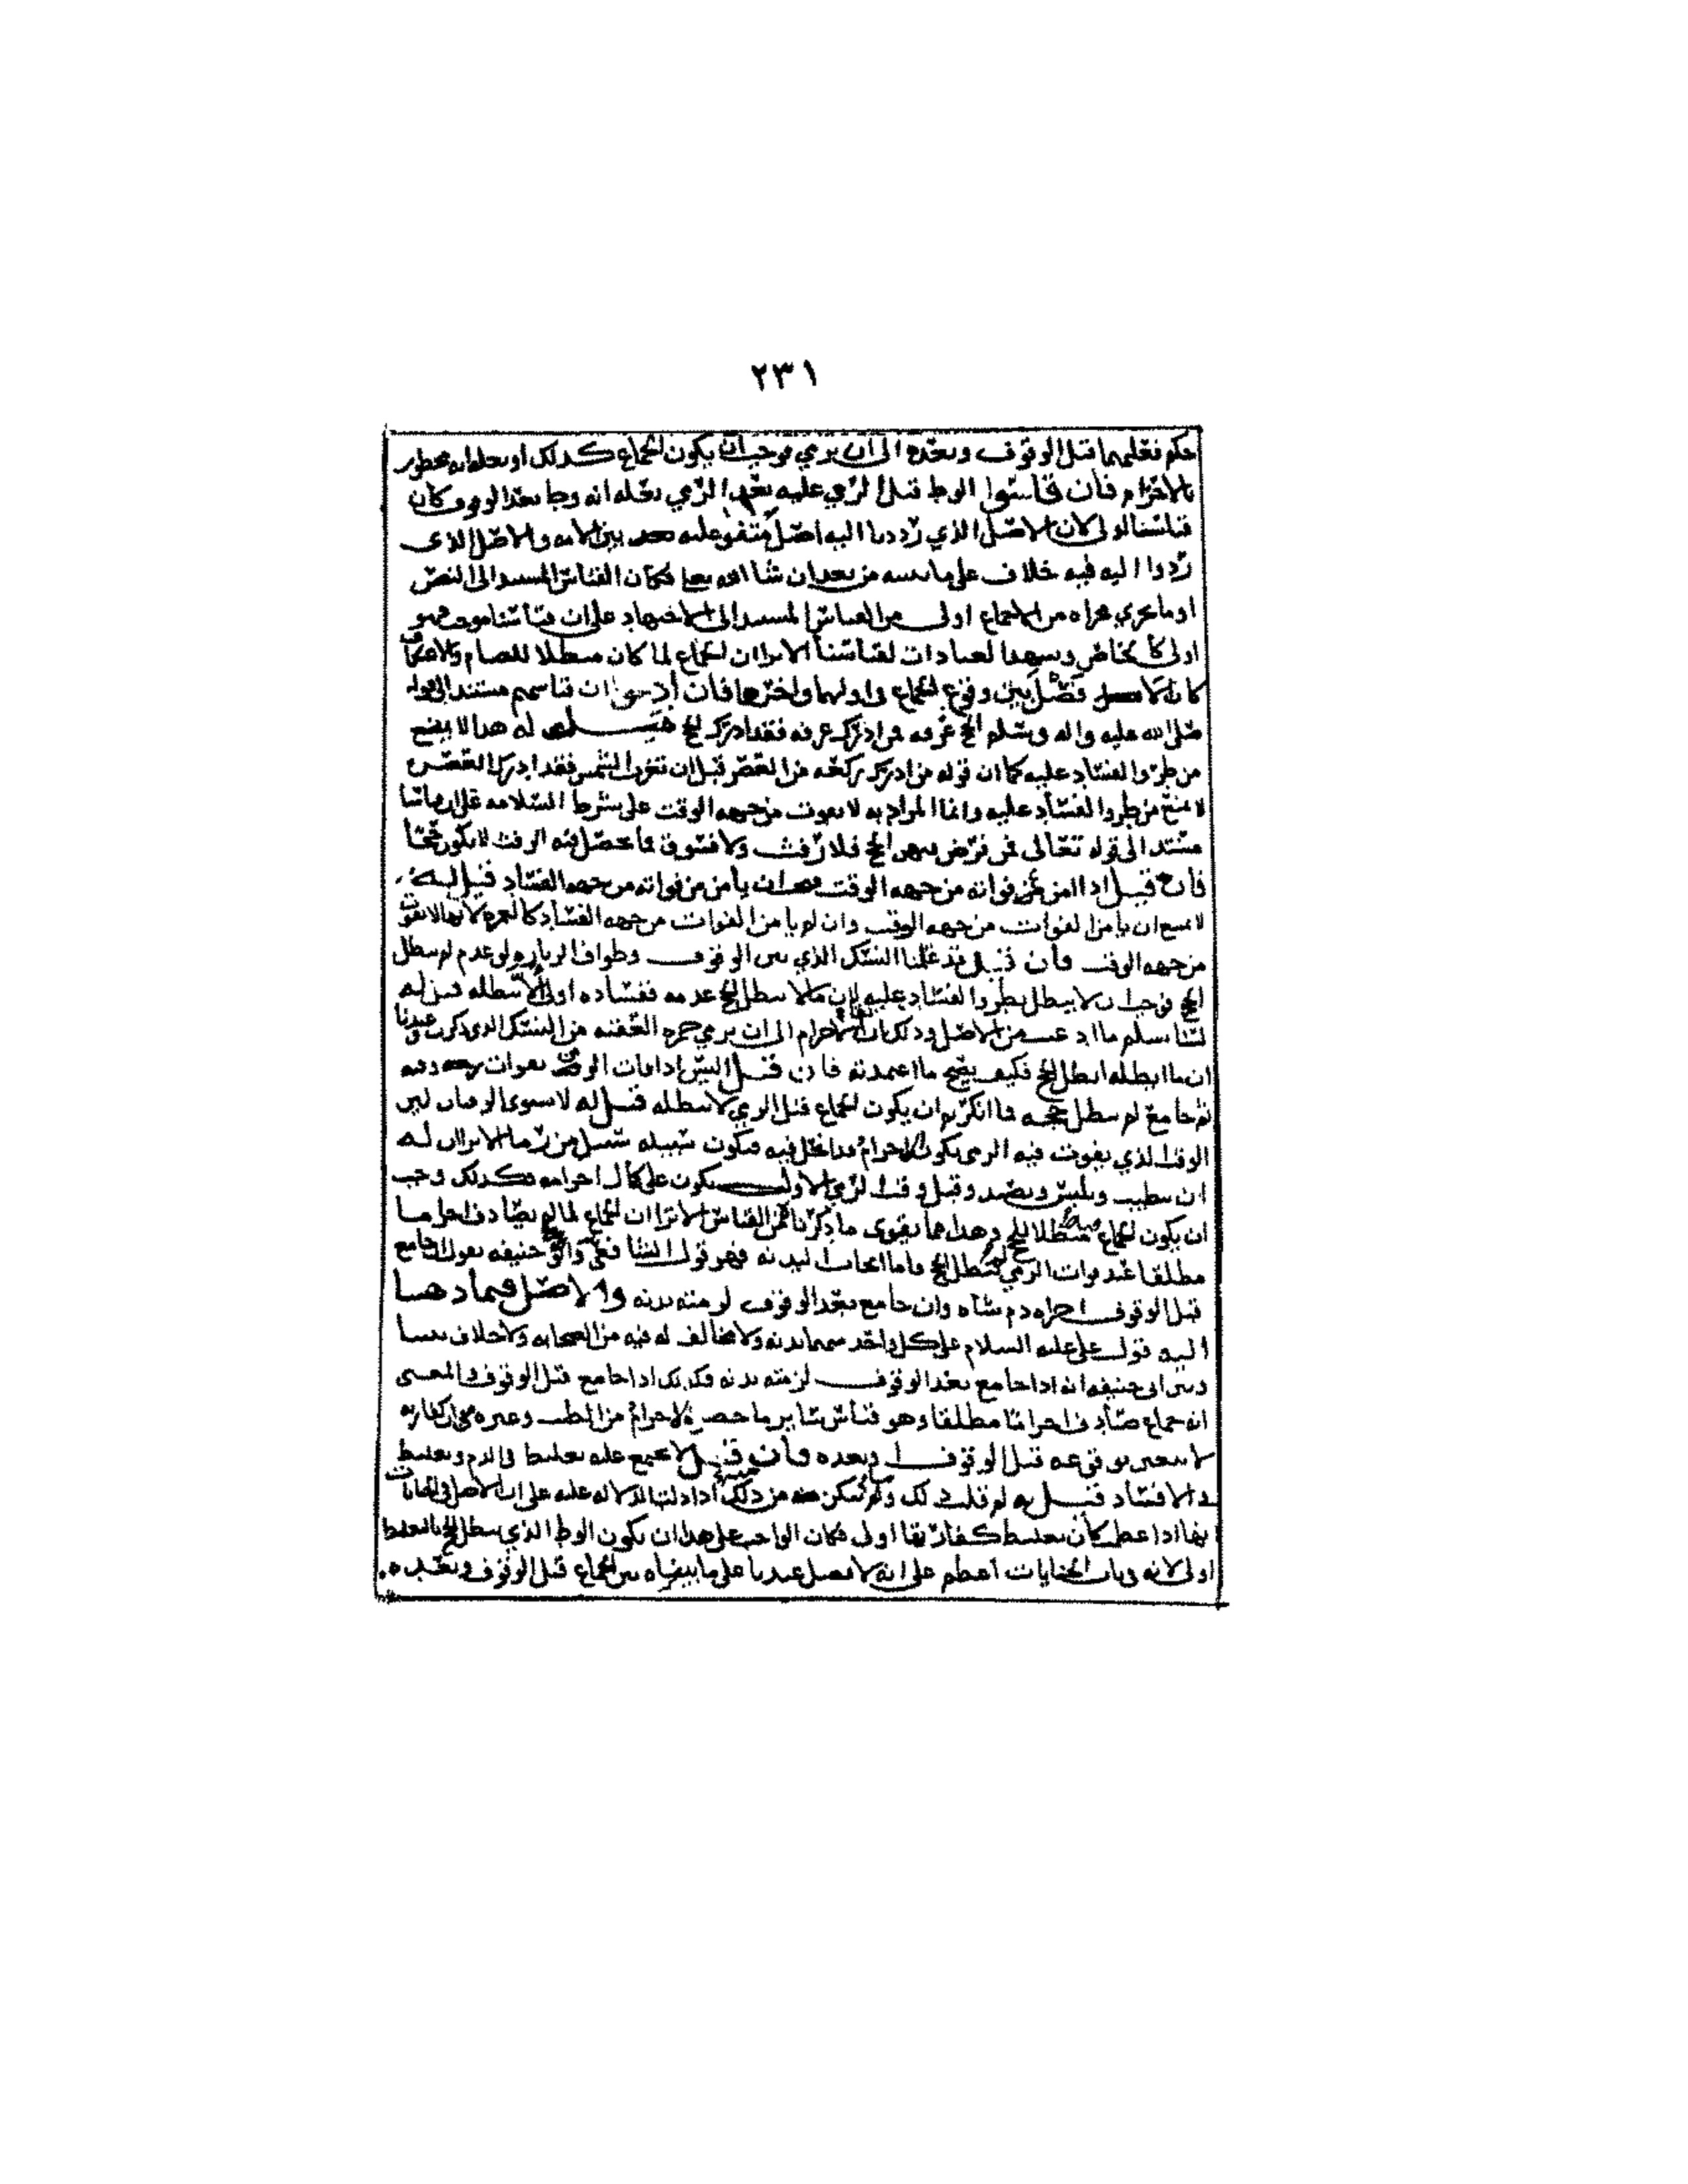 ٢٣١
حكم فعلهما قبل الوقوف وبعده الى ان يرمي فوجب ان يكون الجماع كذلك او بعله انه محظور
بالاحرام فان قاسوا الوطء قبل الرمي عليه بعد الرمي بعله انه وطا بعد الوقوف كان
قياسنا اولى لان الاصل الذي رددنا اليه اصل متفق عليه بين الامه والاصل الذي
ردوا اليه فيه خلاف على ما نبينه من بعد ان شا الله تعا فكان القياس المستند الى النص
او ما يجري مجراه من الاجماع اولى من القياس المستند الى الاجتهاد على ان قياسنا فهو
اولى كالخاص ويشهد العبادات لقياسنا الا ترا ان الجماع لما كان مبطلا للصيام والاعتكاف
كان لا فصل بين وقوع الجماع في اولهما واخرهما فان ادعوا ان قياسهم مستند الى قوله
صلى الله عليه واله وسلم الحج عرفه فمن ادرك عرفه فقد ادرك الحج قيل له هذا لا يمنع
من طروا الفساد عليه كما ان قوله من ادرك ركعه من العصر قبل ان تغرب الشمس فقد ادرك العصر
لا يمنع من طروا الفساد عليه وانما المراد به لا يفوت من جهه الوقت على شرط السلامه على ان قياسنا
مستند الى قوله تعالى فمن فرض فيهن الحج فلا رفث ولا فسوق فما حصل فيه الرفث لا يكون حجا
فان قيل اذا امن من فواته من جهه الوقت ان يامن من فواته من جهه الفساد قيل له
لا يمتنع ان يامن الفوات من جهه الوقت وان لم يامن الفوات من جهه الفساد كالعمره لانها لا تفوت
من جهه الوقت فان قيل قد علمنا النسك الذي بين الوقوف وطواف الزياره لو عدم لم يبطل
الحج فوجب ان لا يبطل بطروا الفساد عليه لان ما لا يبطل الحج عدمه ففساده اولى الا يبطله قيل له
لسنا نسلم ما ادعيت من الاصل وذلك ان الاحرام الى ان يرمي جمره العقبه من النسك الذي ذكرت وعندنا
ان ما ابطله ابطل الحج فكيف يصح ما اعتمدته فان قيل اليس اذا فات الوقت بفوات رميه وفيه
ثم جامع لم يبطل حجه فما انكرتم ان يكون الجماع قبل الرمي لا يبطله قيل له لا يستوي الوقتان لان
الوقت الذي يفوت فيه الرمي يكون الاحرام فيه فيكون سبيله سبيل من رما الا ترا ان له
ان يتطيب ويلبس ويصيد وقبل وقت الرمي الاول يكون على كمال احرامه فكذلك وجب
ان يكون الجماع مبطلا للحج وهذا مما يقوى ما ذكرنا من القياس الا ترا ان الجماع لما لم يصادف احراما
مطلقا عند فوات الرمي لم يبطل الحج فاما ايجاب البدنه فهو قول الشافعي وابو حنيفه يقول ان جامع
قبل الوقوف اجزاه دم شاه وان جامع بعد الوقوف لزمته بدنه والاصل فيما ذهبنا
اليه قول علي عليه السلام على كل واحد منهما بدنه ولا مخالف له فيه من الصحابه ولا خلاف بيننا
وبين ابي حنيفه انه اذا جامع بعد الوقوف لزمته بدنه فكذلك اذا جامع قبل الوقوف والمعنى
انه جماع صادف احراما مطلقا وهو قياس سائر ما حصره الاحرام من الطيب وغيره في ان كفارته
لا تتغير بوقوعه قبل الوقوف او بعده فان قيل لا يجتمع عليه تغليظ في الدم وتغليظ
في الافساد قيل له لم قلت ذلك ولم تنكر من ذلك اذا دلت الدلاله عليه على ان الاصل في الجنايات
انها اذا عظم كان تغليظ كفارتها اولى فكان الواجب على هذا ان يكون الوطا الذي يبطل الحج بالتغليظ
اولى لانه في باب الجنايات اعظم على انه لا فصل عندنا على ما بيناه بين الجماع قبل الوقوف وبعده